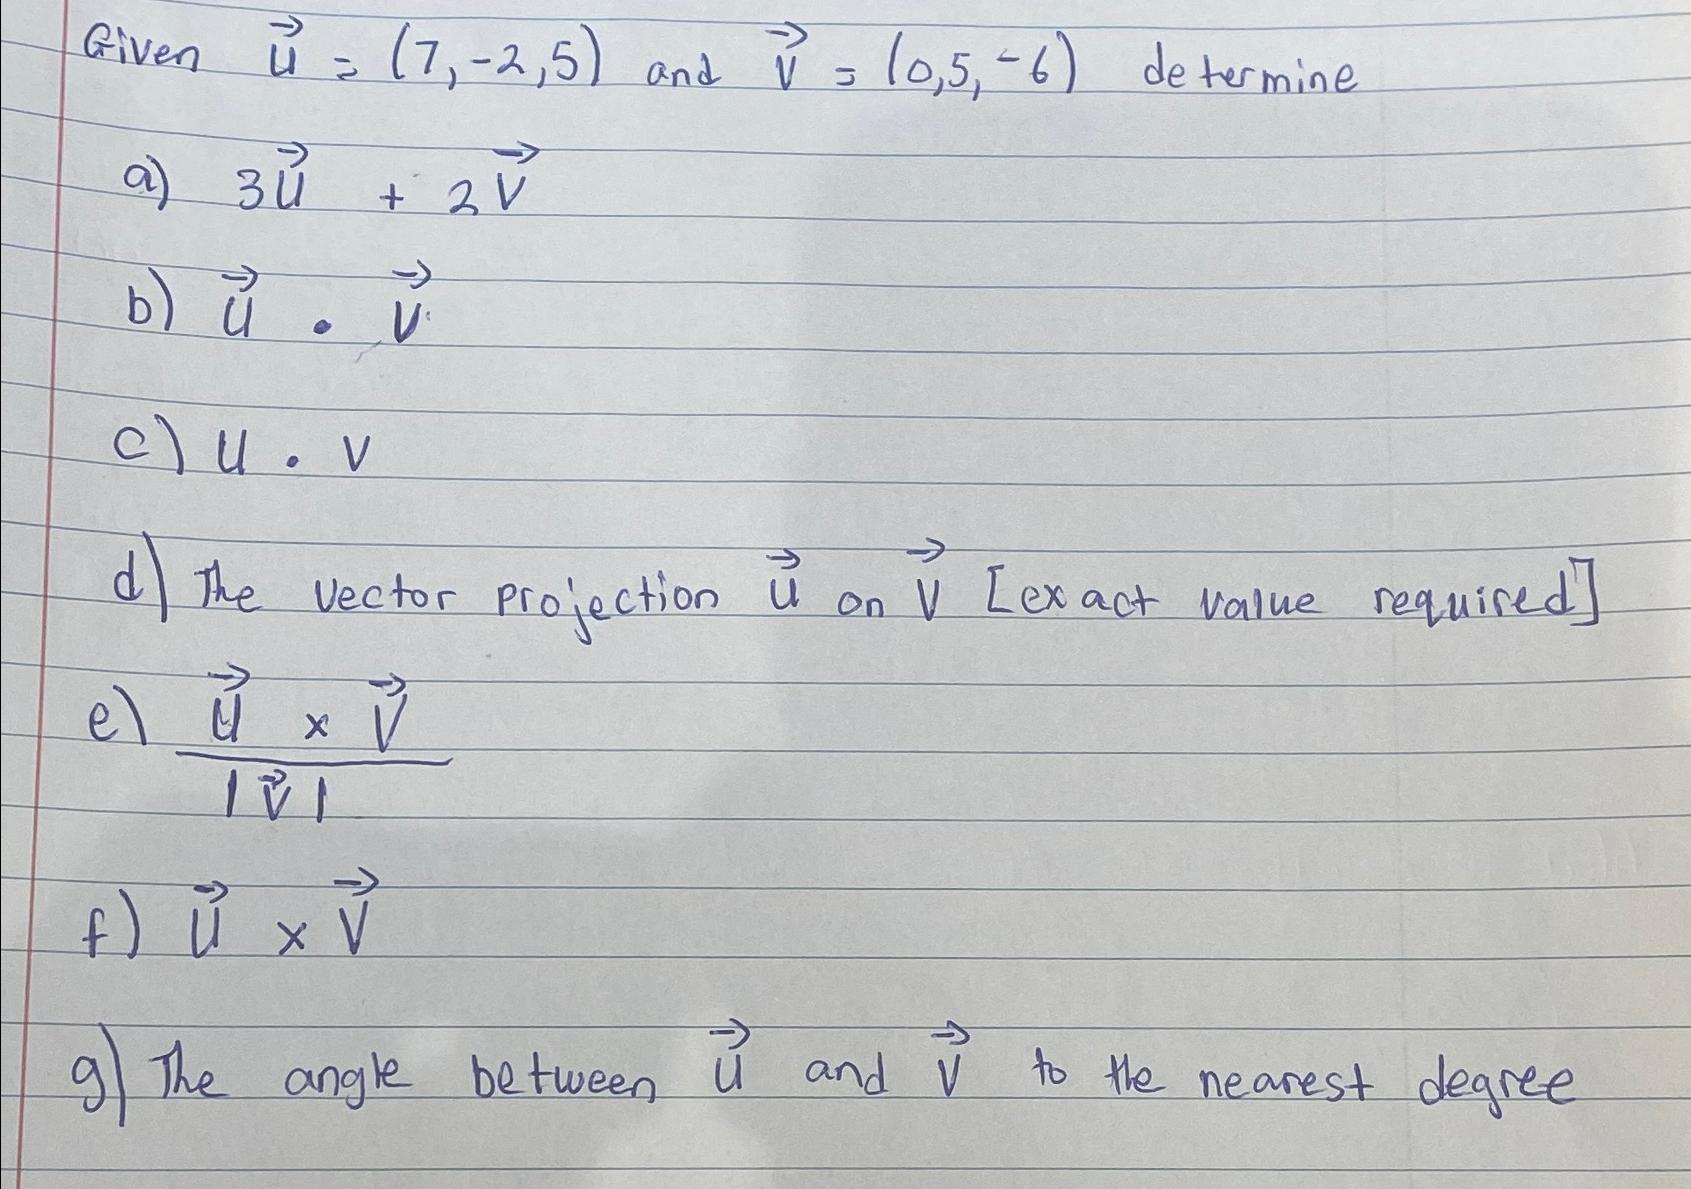 Given u⃗ = (7,-2,5) and v⃗ = (0,5,-6) determine
a) 3u⃗ + 2v⃗
b) u⃗ • v⃗
c) u • v
d) The vector projection u⃗ on v⃗ [exact value required]
e) u⃗ x v⃗
|v⃗|
f) u⃗ x v⃗
g) The angle between u⃗ and v⃗ to the nearest degree